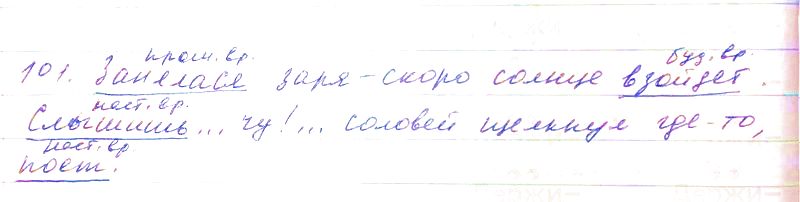 прош. вр. буд. вр.
101. Занялася заря - скоро солнце взойдет.
наст. вр.
Слышишь... чу!... соловей щелкнул где-то,
наст. вр
поет.